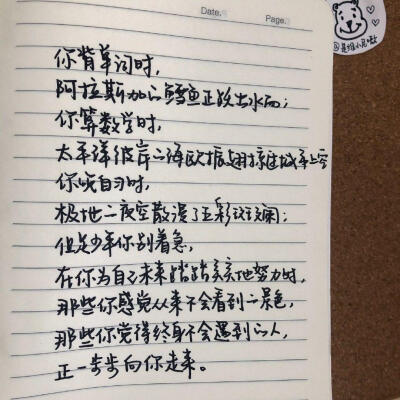 Date.
Page.
你背单词时,
阿拉斯加的鳕鱼正跃出水面;
你算数学时,
太平洋彼岸的海鸥振翅掠过城市上空
你晚自习时,
极地的夜空散漫了五彩斑斓;
但是少年你别着急,
在你为自己未来踏踏实实地努力时,
那些你感觉从来不会看到的景色,
那些你觉得终身不会遇到的人,
正一步步向你走来。